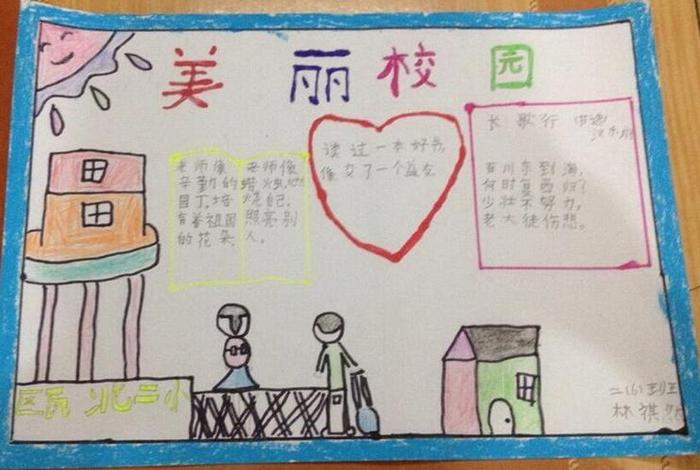 美丽校园
老师像
辛勤的
园丁,培
育着祖国
的花朵。
老师像
蜡烛,
烧自己,
照亮别
人。
读过一本好书
像交了一个益友
长歌行
百川东到海,
何时复西归?
少壮不努力,
老大徒伤悲。
北二小
二(6)班
林祺